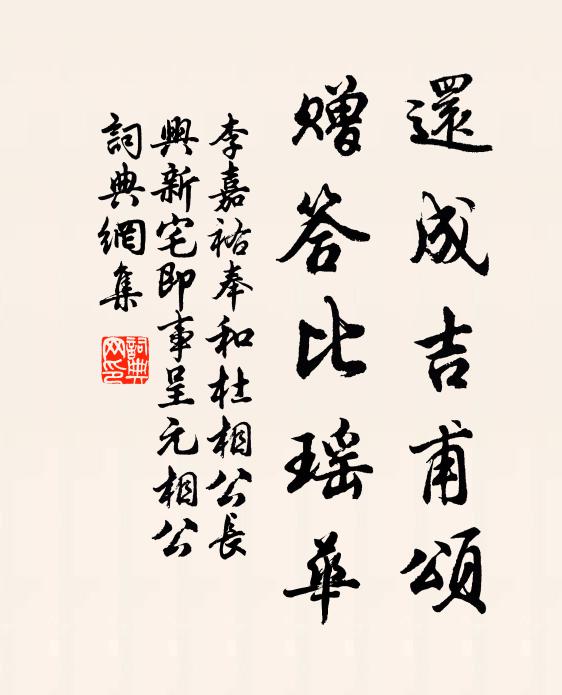 還成吉甫頌
贈答比瑶華
李嘉祐奉和杜相公長
興新宅即事呈元相公
詞典網集
詞典
网印